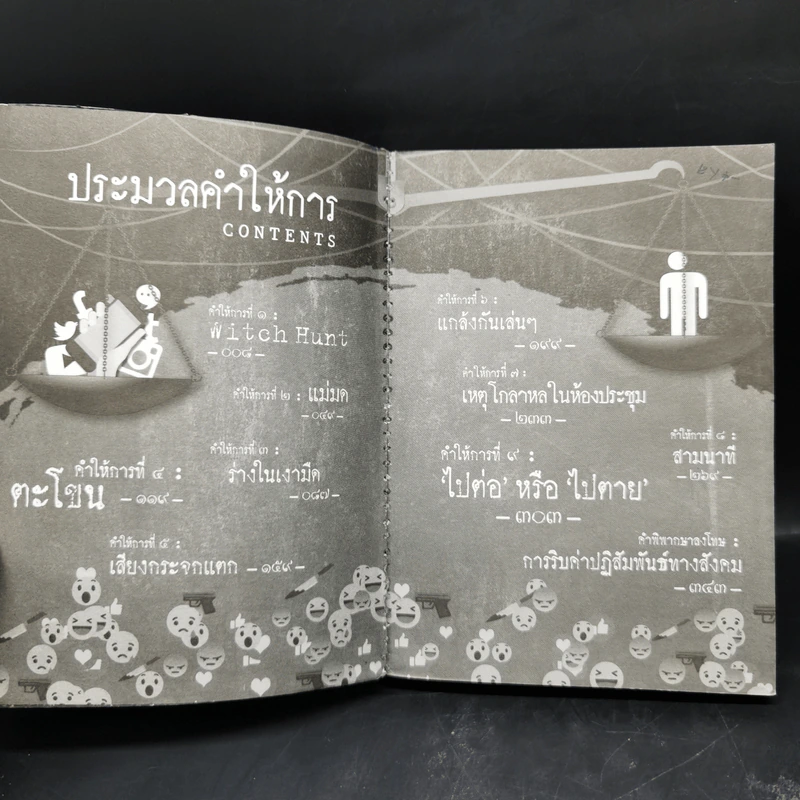 ประมวลคำให้การ
CONTENTS
คำให้การที่ ๑ :
Witch Hunt
– ๐๐๘ –
คำให้การที่ ๒ : แม่มด
– ๐๔๙ –
คำให้การที่ ๓ :
ร่างในเงามืด
– ๐๘๗ –
คำให้การที่ ๔ :
ตะโขน – ๑๑๙ –
คำให้การที่ ๕ :
เสียงกระจกแตก – ๑๕๙ –
คำให้การที่ ๖ :
แกล้งกันเล่นๆ
– ๑๙๙ –
คำให้การที่ ๗ :
เหตุโกลาหลในห้องประชุม
– ๒๓๓ –
คำให้การที่ ๘ :
สามนาที
– ๒๖๙ –
คำให้การที่ ๙ :
'ไปต่อ' หรือ 'ไปตาย'
– ๓๐๓ –
คำพิพากษาลงโทษ :
การริบค่าปฏิสัมพันธ์ทางสังคม
– ๓๔๓ –